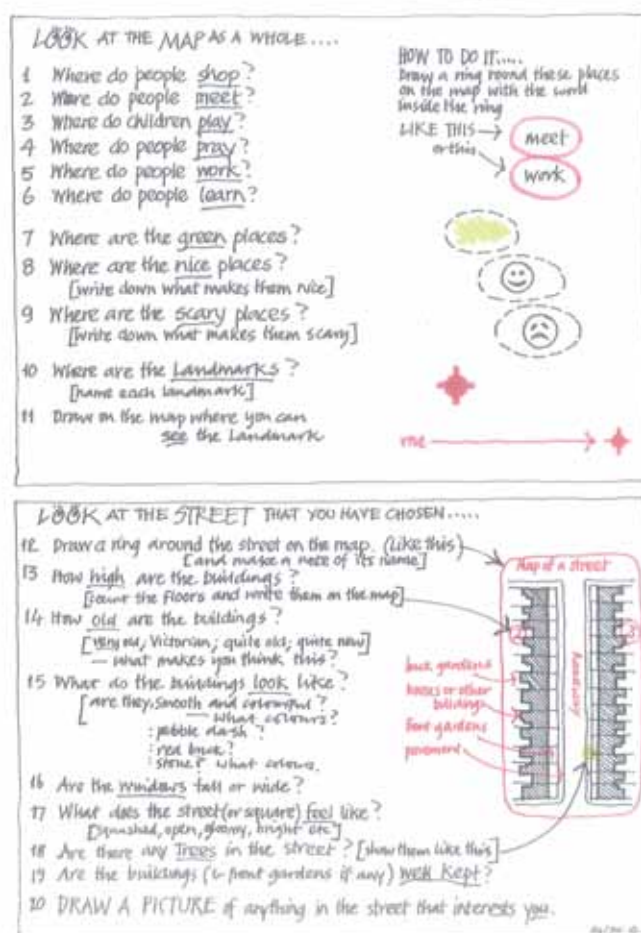 LOOK AT THE MAP AS A WHOLE....
1 Where do people shop?
2 Where do people meet?
3 Where do children play?
4 Where do people pray?
5 Where do people work?
6 Where do people learn?
7 Where are the green places?
8 Where are the nice places?
[write down what makes them nice]
9 Where are the scary places?
[write down what makes them scary]
10 Where are the Landmarks?
[name each landmark]
11 Draw on the map where you can
see the Landmark
HOW TO DO IT.....
Draw a ring round these places
on the map with the word
inside the ring
LIKE THIS
or this
meet
work
me
LOOK AT THE STREET THAT YOU HAVE CHOSEN.....
12 Draw a ring around the street on the map. (Like this)
[and make a note of its name]
13 How high are the buildings?
[count the floors and write them on the map]
14 How old are the buildings?
[very old, Victorian; quite old; quite new]
— what makes you think this?
15 What do the buildings look like?
[are they smooth and colourful?
— what colours?
: pebble dash?
: red brick?
: stone? what colours.
16 Are the windows tall or wide?
17 What does the street (or square) feel like?
[squashed, open, gloomy, bright etc]
18 Are there any Trees in the street? [show them like this]
19 Are the buildings (& front gardens if any) well kept?
20 DRAW A PICTURE of anything in the street that interests you.
Map of a street
2
3
back gardens
houses or other
buildings
front gardens
pavement
roadway